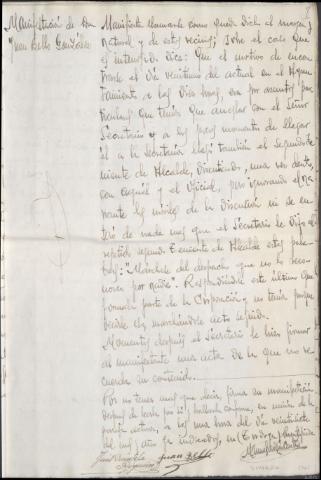 Manifestación de Don
Juan Bello González
Manifiesta llamarse como queda dicho, el mayor y
natural y de esta vecind; sobre el caso que
se dice: Que el motivo de encon
trarse el día veintiuno del actual en el Ayun
tamiento a las diez horas, era por asuntos par
ticulares que tenía que arreglar con el Señor
Secretario y a los pocos momentos de llegar
él a la Secretaría llegó también el Segundo te
niente de Alcalde, discutiendo, una vez dentro,
con aquel y el Oficial, pero ignorando el ma
nifestante los móviles de la discusión ni se en
teró de nada mas que el Secretario le dijo al
repetido segundo Teniente de Alcalde estas pala
bras: "Márchese del despacho que no le reco
nozco por nadie". Respondiéndole este último que
formaba parte de la Corporación y no tenía por que
decirle eso, marchándose acto seguido.
Momentos después el Secretario le hizo firmar
al manifestante una acta de la que no re
cuerda su contenido.
Y no tenés mas que decir, firma su manifestación
despues de leida por sí y hallarla conforme, en unión de la
pareja actuante, a las una hora del día veintisiete
del mes y año ya indicados, en
Juan Bello